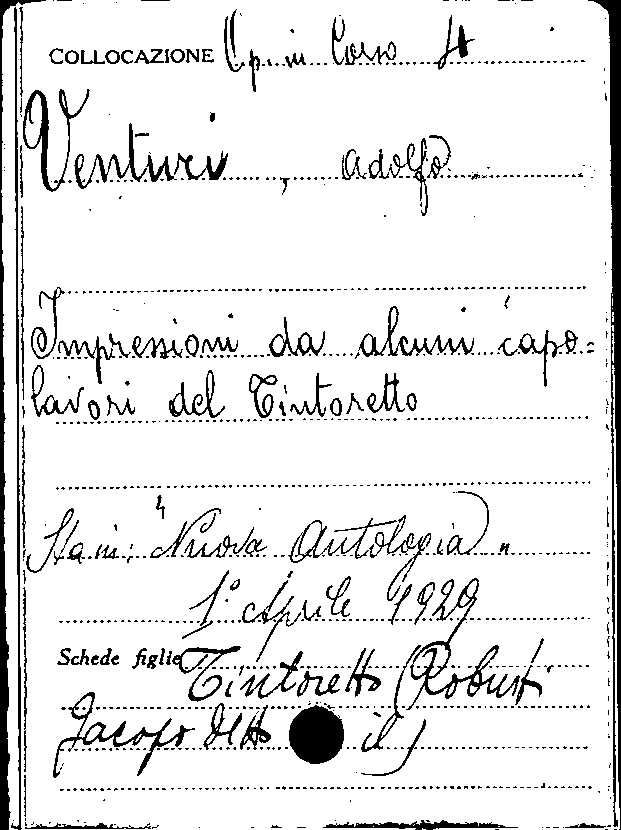 COLLOCAZIONE Op. in Corso It
Venturi, Adolfo
Impressioni da alcuni capo=
lavori del Tintoretto
Sta in: "Nuova Antologia"
1° Aprile 1929
Schede figlie Tintoretto (Robusti
Jacopo detto il)